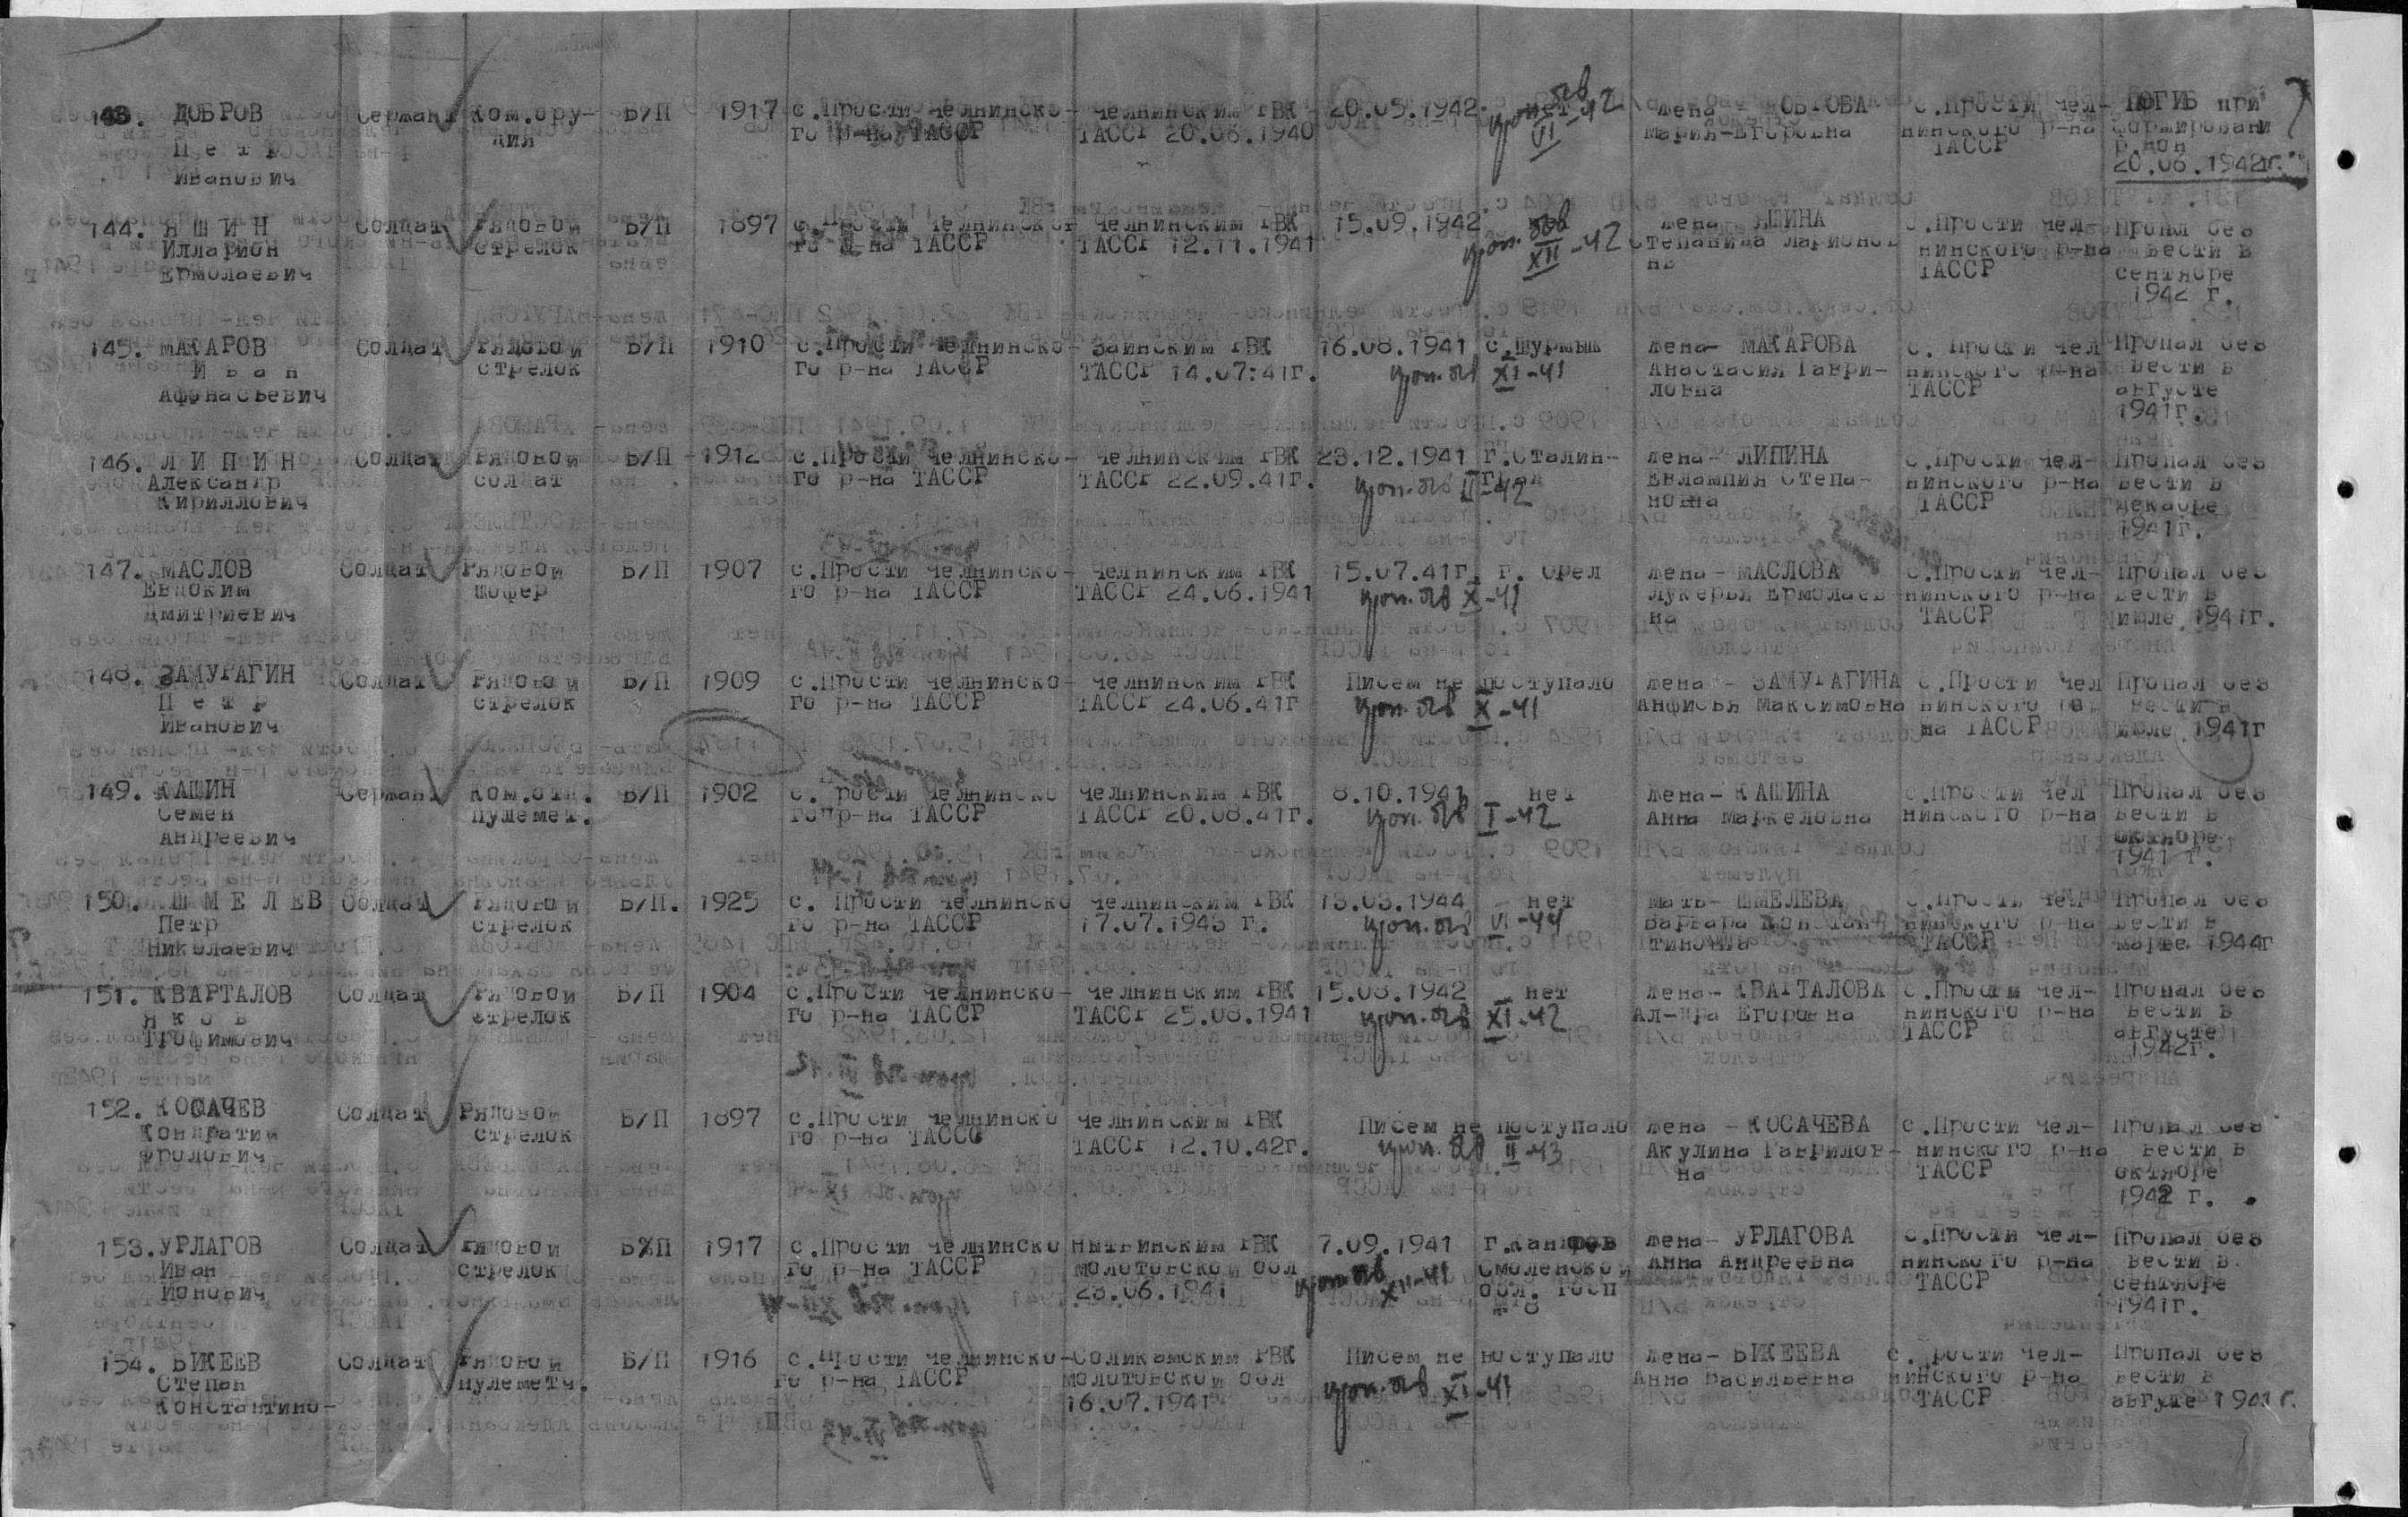 143. ДОБРОВ Сержант Ком.ору- Б/П 1917 с.Прости Челнинско- Челнинским РВК 20.05.1942. нет жена ДОБРОВА с.Прости Чел- ПОГИБ при
Петр дия го р-на ТАССР ТАССР 20.08.1940 Мария-Егоровна нинского р-на формировани
Иванович ТАССР 20.06.1942г.
VI-42
144. ЯШИН Солдат Рядовой Б/П 1897 с.Прости Челнинско- Челнинским РВК 15.09.1942 жена- ЯШИНА с.Прости Чел- Пропал без
Илларион стрелок го р-на ТАССР ТАССР 12.11.1941 Степанида Ларионов нинского р-на вести в
Ермолаевич на ТАССР сентябре
1942 г.
XII-42
145. МАКАРОВ Солдат Рядовой Б/П 1910 с.Прости Челнинско- Заинским РВК 16.08.1941 с.Шурмык жена- МАКАРОВА с. Прости Чел Пропал без
Иван стрелок го р-на ТАССР ТАССР 14.07:41г. XI-41 Анастасия Гаври- нинского р-на вести в
Афонасьевич ловна ТАССР августе
1941г.
146. ЛИПИН Солдат Рядовой Б/П 1912 с.Прости Челнинско- Челнинским РВК 23.12.1941 г.Сталин- жена- ЛИПИНА с.Прости Чел- Пропал без
Александр солдат го р-на ТАССР ТАССР 22.09.41г. II-42 Евлампия Степа- нинского р-на вести в
Кириллович новна ТАССР декабре
1941г.
147. МАСЛОВ Солдат Рядовой Б/П 1907 с.Прости Челнинско- Челнинским РВК 15.07.41г. г. Орел жена- МАСЛОВА с.Прости Чел- Пропал без
Евдоким шофер го р-на ТАССР ТАССР 24.06.1941 X-41 Лукерья Ермолаев- нинского р-на вести в
Дмитриевич на ТАССР июле 1941г.
148. ЗАМУРАГИН Солдат Рядовой Б/П 1909 с.Прости Челнинско- Челнинским РВК Писем не поступало жена - ЗАМУРАГИНА с.Прости Чел Пропал без
Петр стрелок го р-на ТАССР ТАССР 24.06.41г X-41 Анфисья Максимовна нинского ра вести в
Иванович на ТАССР июле 1941г
149. КАШИН Сержант Ком.отд. Б/П 1902 с. Прости Челнинско Челнинским РВК 8.10.1941 нет жена- КАШИНА с.Прости Чел Пропал без
Семен пулемет. го р-на ТАССР ТАССР 20.08.41г. I-42 Анна Маркеловна нинского р-на вести в
Андреевич октябре
1941 г.
150. ШМЕЛЕВ Солдат Рядовой Б/П. 1925 с. Прости Челнинско Челнинским РВК 13.03.1944 нет мать- ШМЕЛЕВА с.Прости Чел Пропал без
Петр стрелок го р-на ТАССР 17.07.1943 г. VI-44 Варвара Констан нинского р-на вести в
Николаевич тиновна ТАССР марте 1944г
151. КВАРТАЛОВ Солдат Рядовой Б/П 1904 с.Прости Челнинско- Челнинским РВК 15.08.1942 нет жена- КВАРТАЛОВА с.Прости Чел- Пропал без
Яков стрелок го р-на ТАССР ТАССР 25.08.1941 XI-42 Ал-дра Егоровна нинского р-на вести в
Трофимович ТАССР августе
1942г.
152. КОСАЧЕВ Солдат Рядовой Б/П 1897 с.Прости Челнинско Челнинским РВК Писем не поступало жена - КОСАЧЕВА с.Прости Чел- Пропал без
Кондратий стрелок го р-на ТАССС ТАССР 12.10.42г. II-43 Акулина Гаврилов- нинского р-на вести в
Фролович на ТАССР октябре
1942 г.
153. УРЛАГОВ Солдат Рядовой Б%П 1917 с.Прости Челнинско Нытвинским РВК 7.09.1941 жена- УРЛАГОВА с.Прости Чел- Пропал без
Иван стрелок го р-на ТАССР Молотовской обл XII-41 Смоленской Анна Андреевна нинского р-на вести в
Ионович 23.06.1941 обл. госп ТАССР сентябре
1941г.
154. БИЖЕЕВ Солдат Рядовой Б/П 1916 с.Прости Челнинско- Соликамским РВК Писем не поступало жена- БИЖЕЕВА с. Прости Чел- Пропал без
Степан пулеметч. го р-на ТАССР Молотовской обл XI-41 Анна Васильевна нинского р-на вести в
Константино- 16.07.1941 ТАССР августе 1941г.